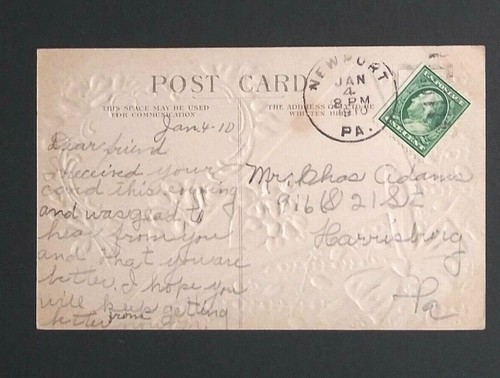 POST CARD
THIS SPACE MAY BE USED
FOR COMMUNICATION
THE ADDRESS
WRITTEN
NEWPORT
JAN
4
8 PM
1910
PA.
U.S. POSTAGE
ONE CENT
Jan. 4-10
Dear friend
I received your
card this evening
and was glad to
hear from you
and that you are
better. I hope you
will keep getting
better
from
Mr. Chas Adams
21 St
Harrisburg
Pa